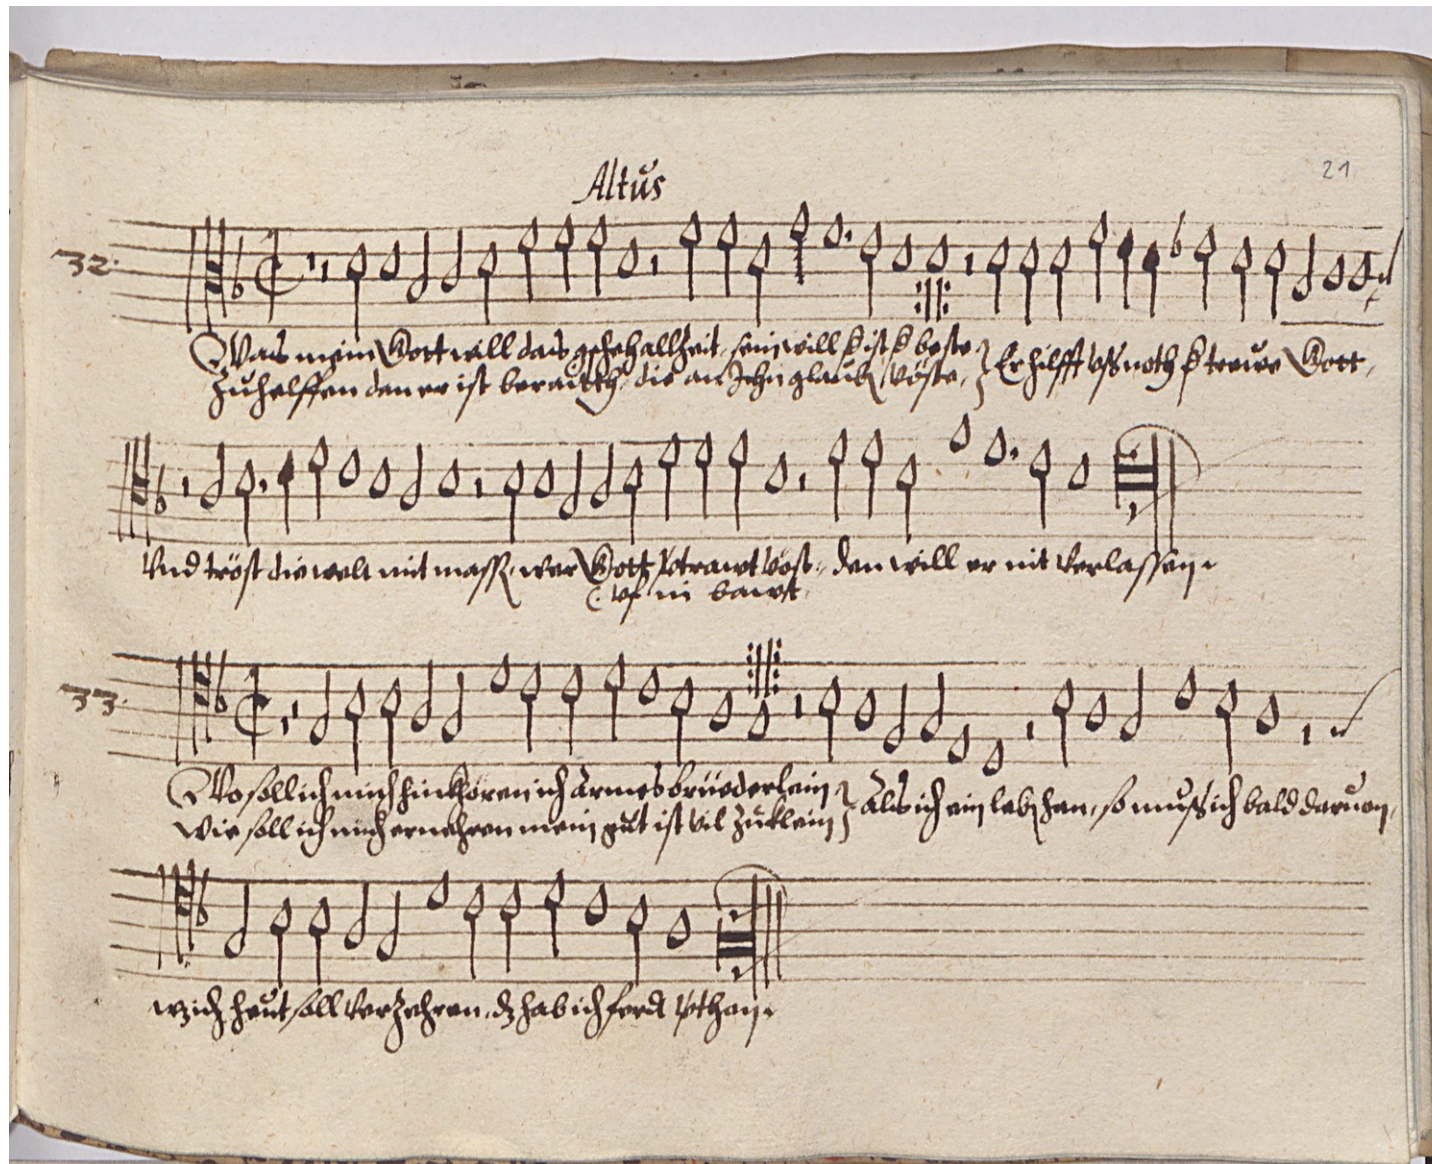 21
Altus
32.
Was mein Gott will das gscheh allzeit, sein will ist beste
Zu helffen dan er ist beraitth, die an Jhn glaub vöste, Er hilfft vß noth treuwe Gott,
Vnd tröst die welt mit mass, wer Gott vtrawt vöst, den will er nit verlassen.
vf in bawt
33.
Wo soll ich mich hinkhören ich armes brüederlein
Wie soll ich mich ernehren mein gut ist vil zuklein Als ich ein leb han, so muß ich bald daruon,
wz ich heut soll verzehren, dz hab ich ferdt vthan.